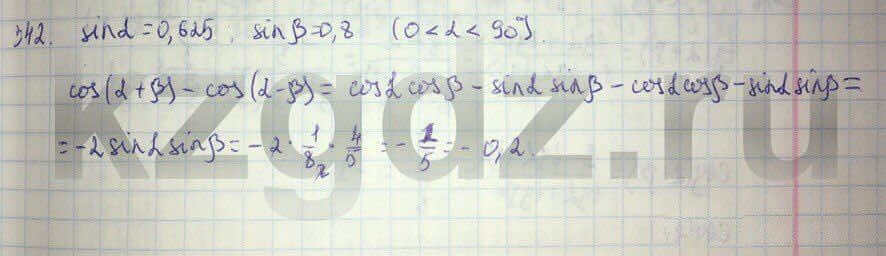 342. sinα = 0,625, sinβ = 0,8 (0 < α < 90°).
cos(α + β) - cos(α - β) = cosα cosβ - sinα sinβ - cosα cosβ - sinα sinβ =
= -2 sinα sinβ = -2 · 1/8 · 4/5 = - 1/5 = - 0,2.
kzgdz.ru